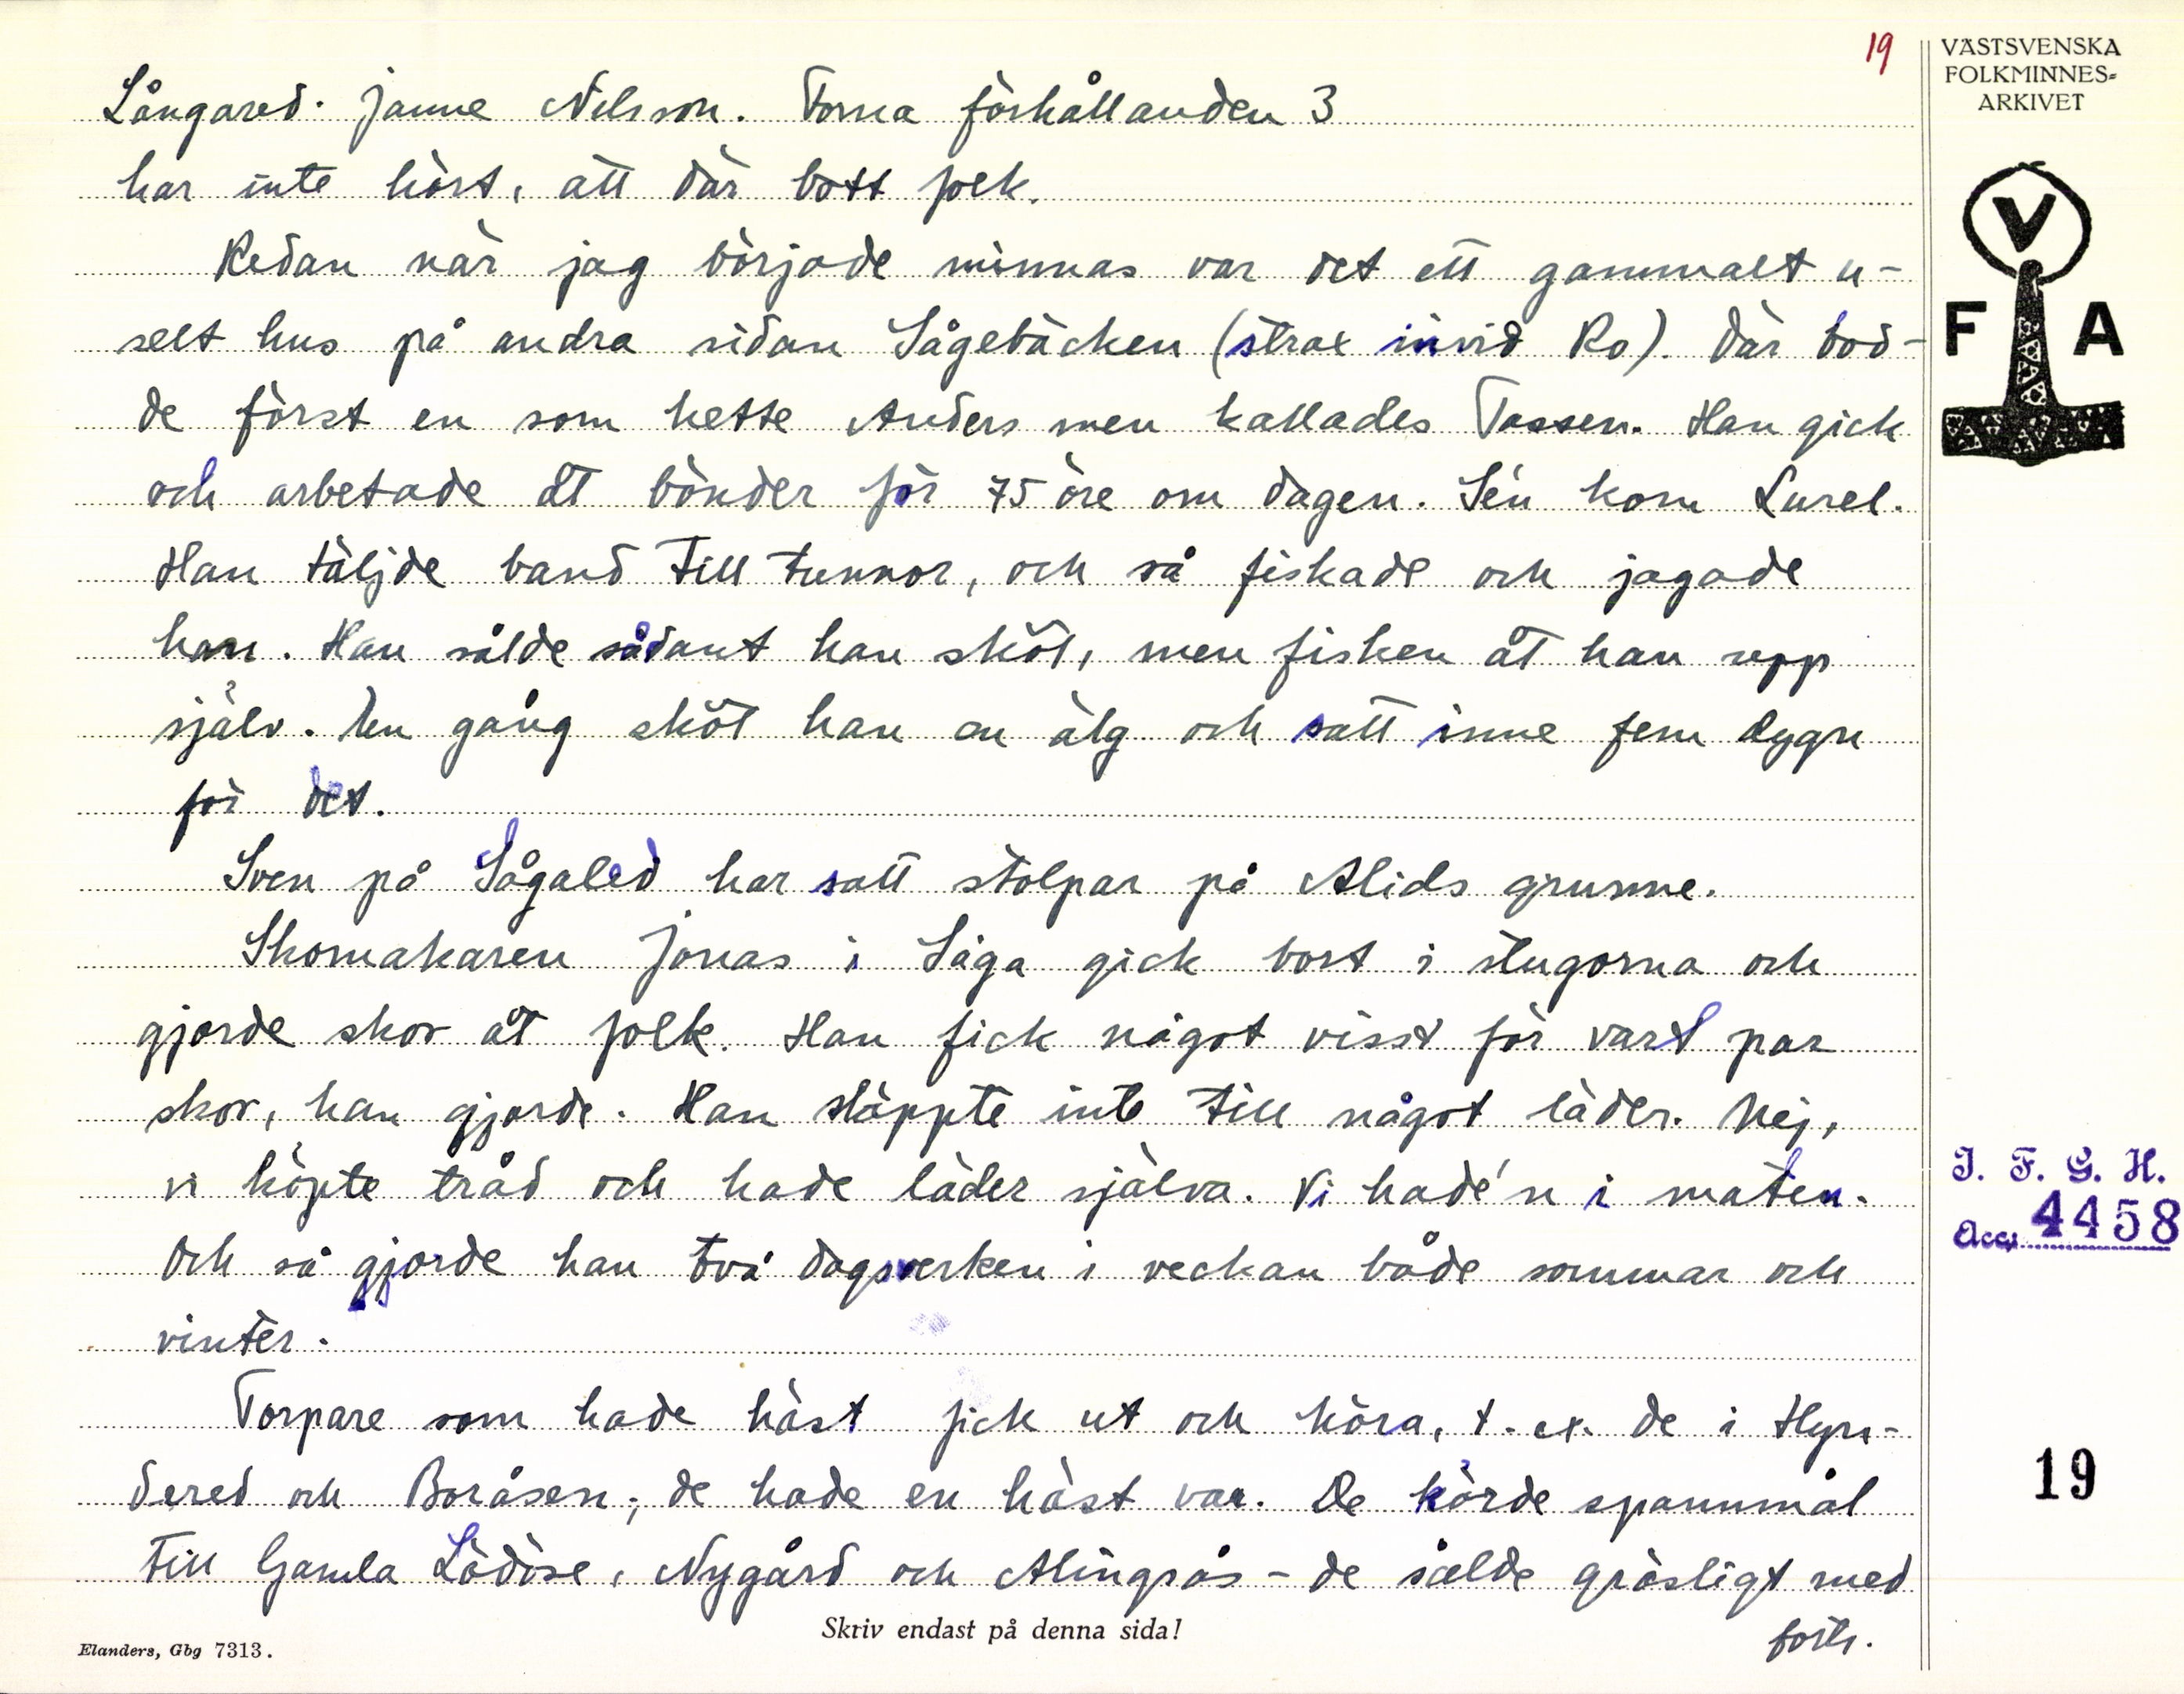 19
VÄSTSVENSKA
FOLKMINNES-
ARKIVET
V
F A
Långared. Janne Nilsson. Forna förhållanden 3
har inte hört, att där bott folk.
Redan när jag började minnas var det ett gammalt u-
selt hus på andra sidan Sågebäcken (strax invid Ro). Där bod-
de först en som hette Anders men kallades Tassen. Han gick
och arbetade åt bönder för 75 öre om dagen. Sén kom Lurel.
Han täljde band till tunnor, och så fiskade och jagade
han. Han sålde sådant han sköt, men fisken åt han upp
själv. En gång sköt han en älg och satt inne fem dygn
för det.
Sven på Sågaled har satt stolpar på Alids grunne.
Skomakaren Jonas i Såga gick bort i stugorna och
gjorde skor åt folk. Han fick något visst för vart par
skor, han gjorde. Han släppte inte till något läder. Nej,
vi köpte tråd och hade läder själva. Vi hade'n i maten.
Och så gjorde han två dagsverken i veckan både sommar och
vinter.
Torpare som hade häst fick ut och köra, t. ex. de i Hyn-
dered och Boråsen; de hade en häst var. De körde spannmål
till Gamla Lödöse, Nygård och Alingsås - de sålde gräsligt med
forts.
Skriv endast på denna sida!
Elanders, Gbg 7313.
I. F. G. H.
Acc. 4458
19